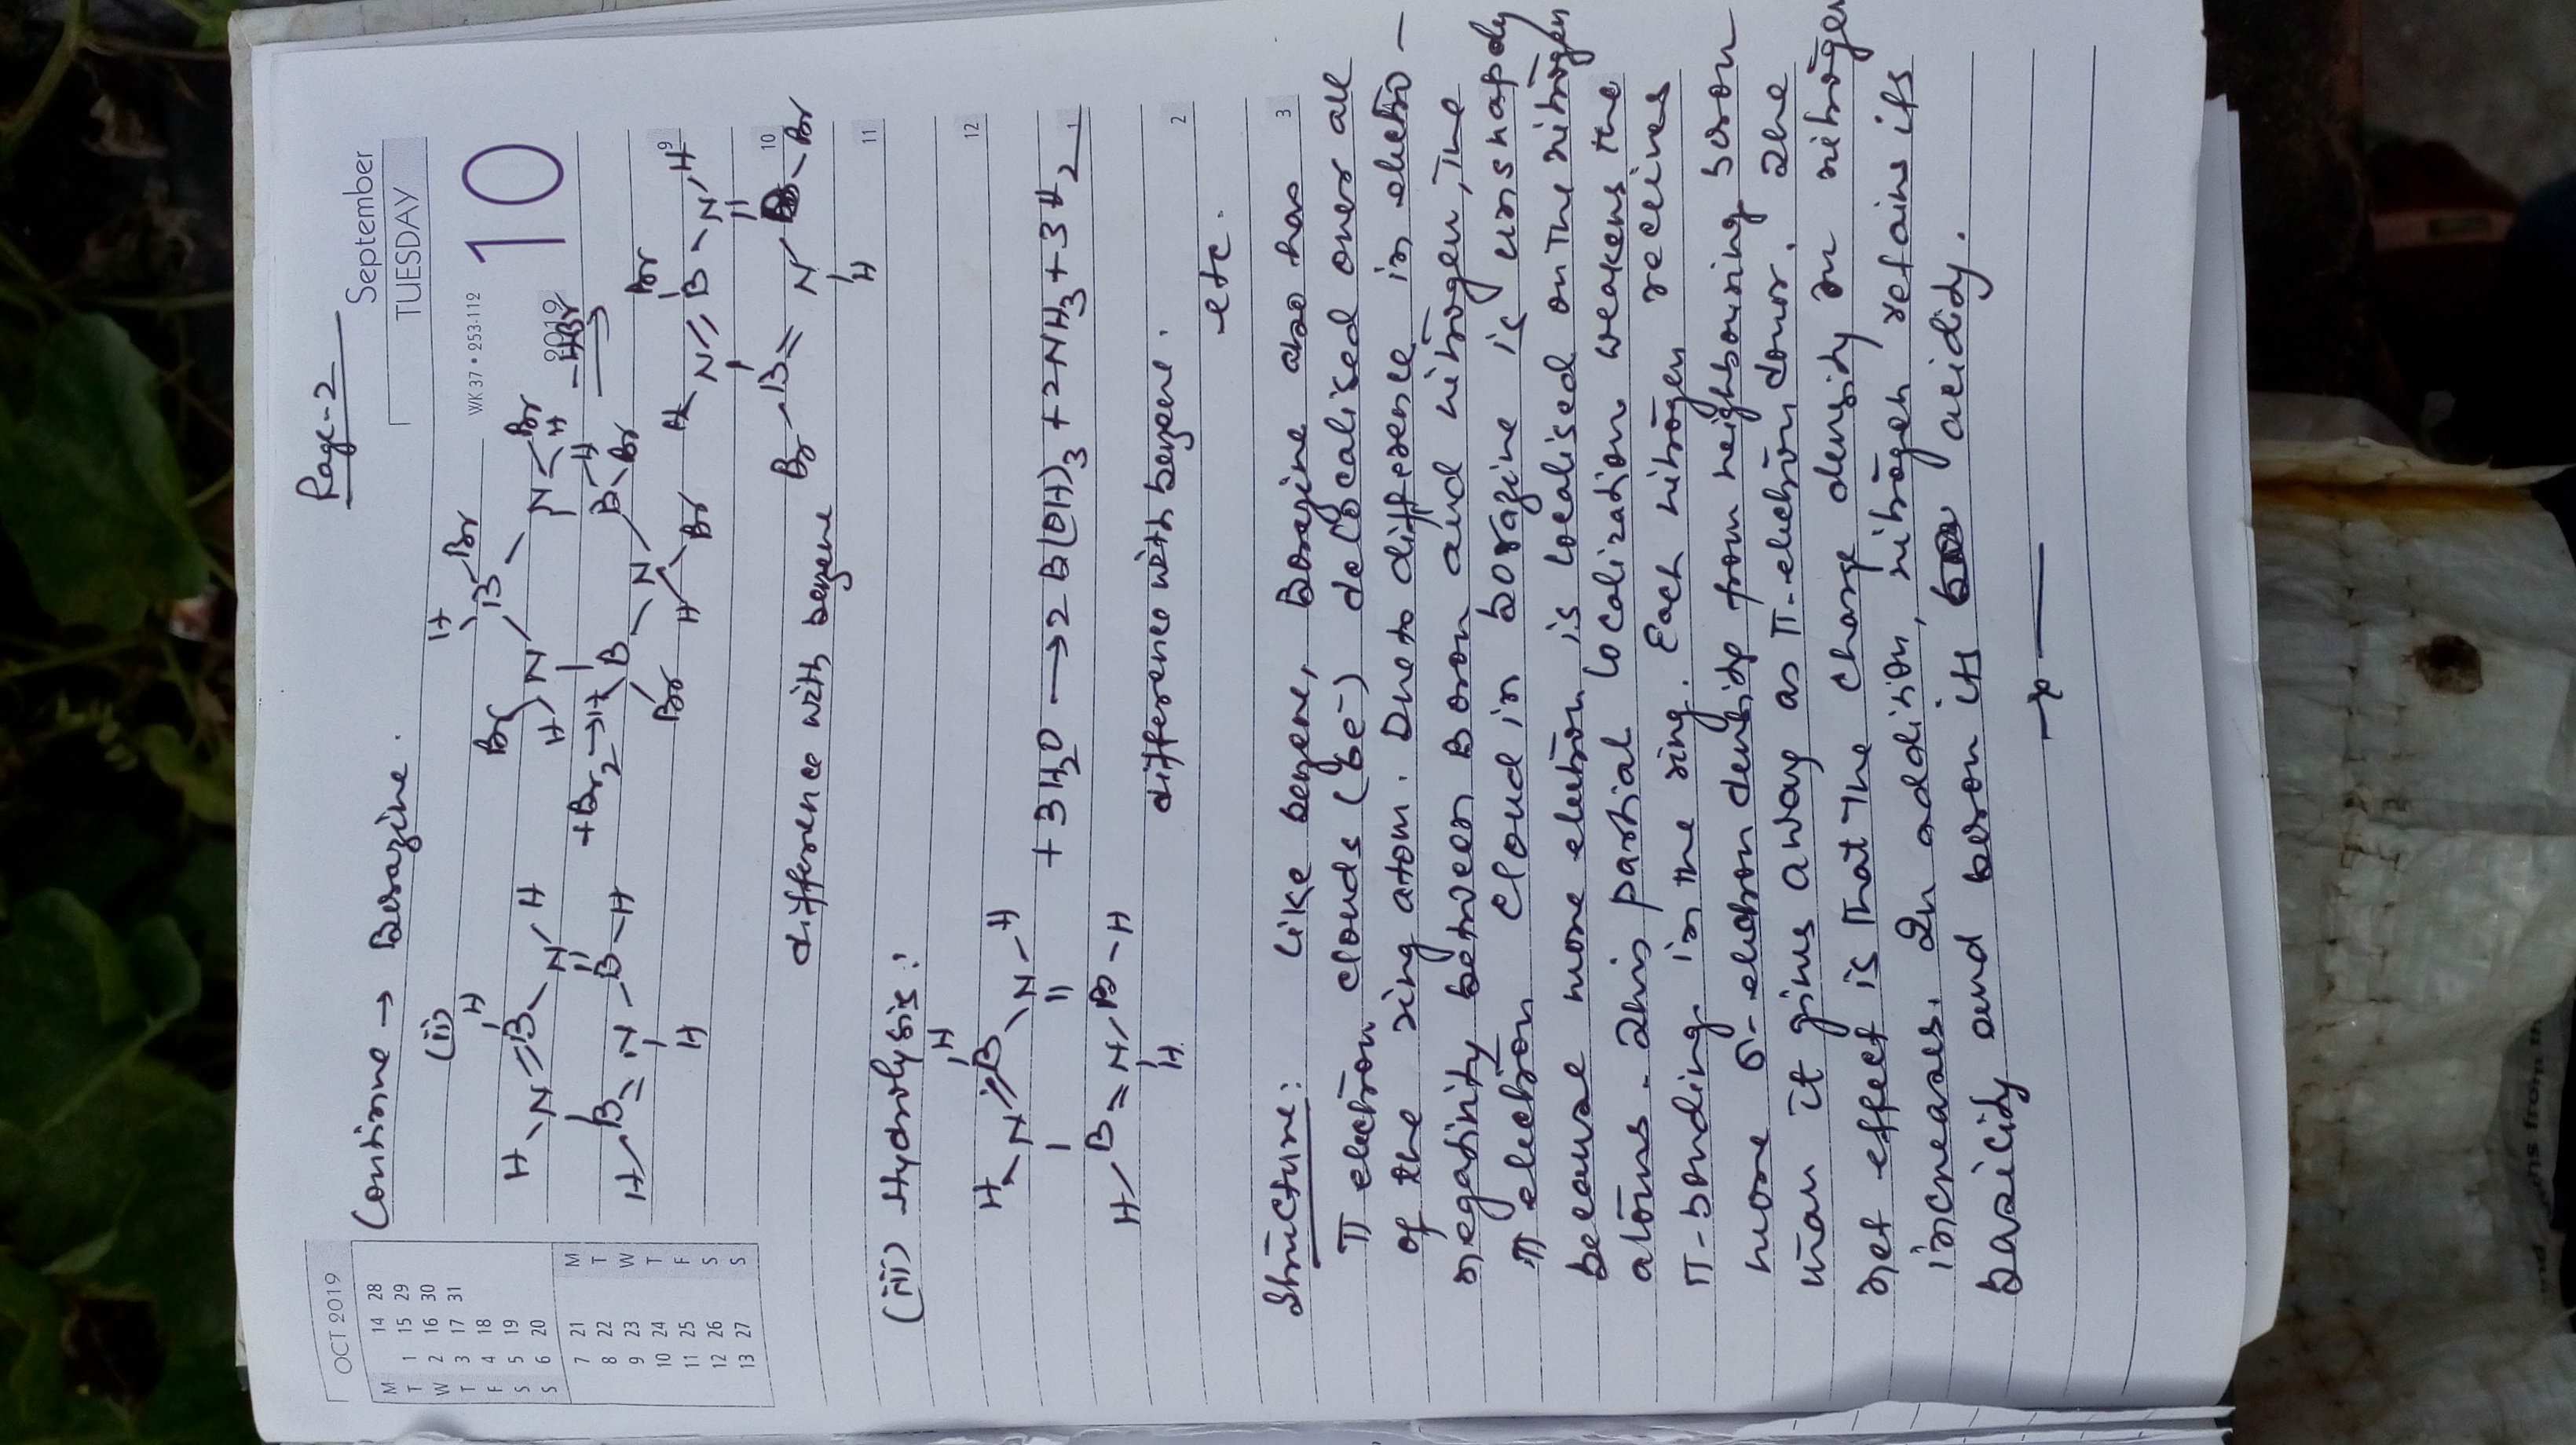 Page-2
September
TUESDAY
OCT 2019
M 14 28
T 1 15 29
W 2 16 30
T 3 17 31
F 4 18
S 5 19
S 6 20
7 21 M
8 22 T
9 23 W
10 24 T
11 25 F
12 26 S
13 27 S
WK 37 • 253-112
10
2019
Continue → Borazine.
(ii)
H H Br B Br
H N=B N H N N Br H
+Br2→ -HBr
H B=N B-H H B N B H Br
H Br H Br
H N=B Br N H
Br B=N B Br
H
9
10
difference with benzene
11
(iii) Hydrolysis:
12
H
H N=B N-H
+ 3H2O → 2B(OH)3 + 2NH3 + 3H2
1
H B=N B-H
H
difference with benzene.
2
etc.
3
Structure: Like benzene, Borazine also has
π electron clouds (6e-) delocalised over all
of the ring atom. Due to difference in electro-
negativity between Boron and nitrogen, the
π electron cloud in borazine is
because more electron is localised on the nitrogen
atoms. This partial localization weakens the
π-bonding in the ring. Each nitrogen receives
more σ-electron density from neighbouring boron
than it gives away as π-electron donor. The
net effect is that the charge density on nitrogen
increases. In addition, nitrogen retains its
basicity and boron its acidity.
—x—